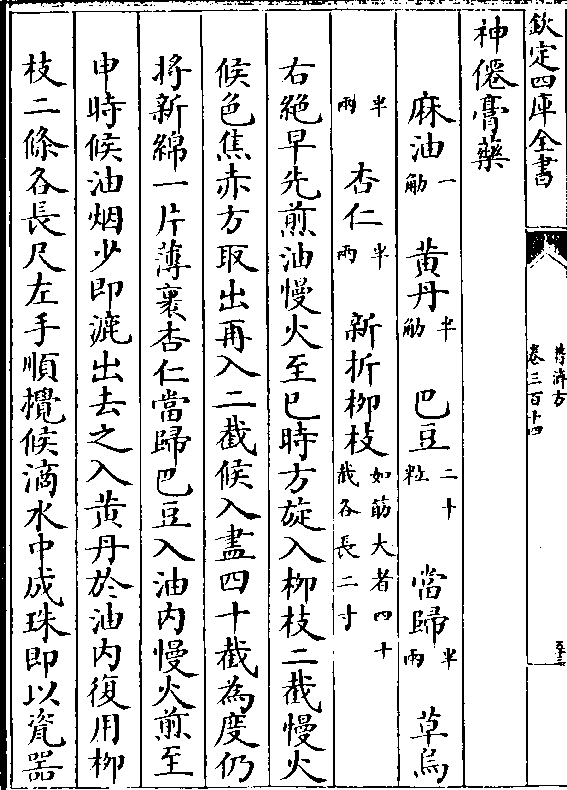 欽定四庫全書
普濟方
卷三百十四
神僊膏藥
麻油一觔 黃丹半觔 巴豆二十粒 當歸半兩 草烏
半兩 杏仁半兩 新折柳枝如筯大者四十截各長二寸
右絶早先煎油慢火至巳時方旋入柳枝二截慢火
候色焦赤方取出再入二截候入盡四十截為度仍
將新綿一片薄裹杏仁當歸巴豆入油内慢火煎至
申時候油烟少即漉出去之入黄丹於油内復用柳
枝二條各長尺左手順攪候滴水中成珠即以瓷器